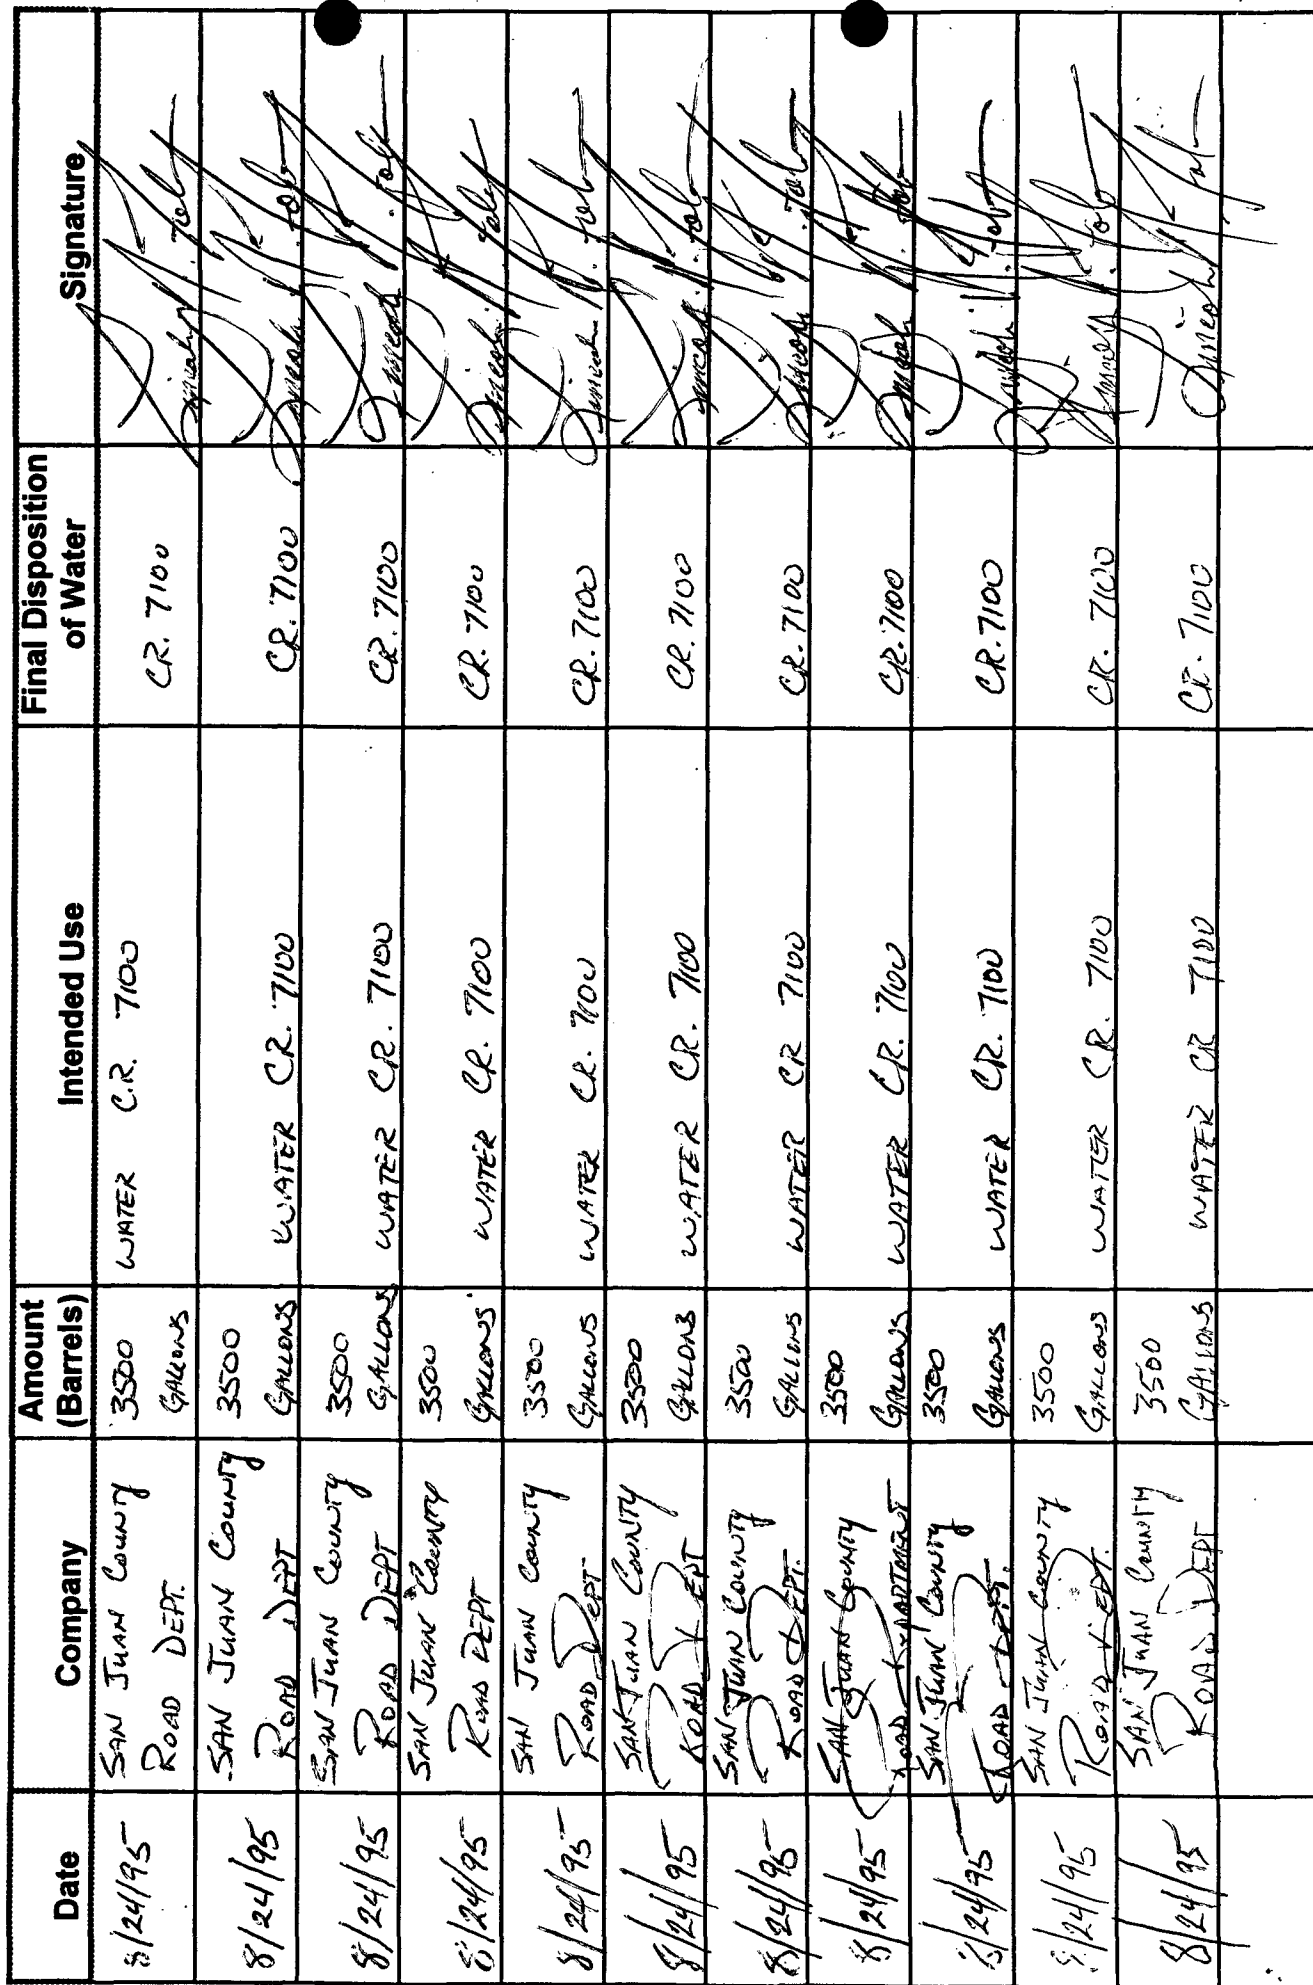 Date Company Amount (Barrels) Intended Use Final Disposition of Water Signature
8/24/95 SAN JUAN COUNTY ROAD DEPT. 3500 GALLONS WATER C.R. 7100 CR. 7100
8/24/95 SAN JUAN COUNTY ROAD DEPT 3500 GALLONS WATER CR. 7100 CR. 7100
8/24/95 SAN JUAN COUNTY ROAD DEPT 3500 GALLONS WATER CR. 7100 CR. 7100
8/24/95 SAN JUAN COUNTY ROAD DEPT 3500 GALLONS WATER CR. 7100 CR. 7100
8/24/95 SAN JUAN COUNTY ROAD DEPT 3500 GALLONS WATER CR. 7100 CR. 7100
8/24/95 SAN JUAN COUNTY ROAD DEPT 3500 GALLONS WATER CR. 7100 CR. 7100
8/24/95 SAN JUAN COUNTY ROAD DEPT. 3500 GALLONS WATER CR 7100 CR. 7100
8/24/95 SAN JUAN COUNTY ROAD DEPARTMENT 3500 GALLONS WATER CR. 7100 CR. 7100
8/24/95 SAN JUAN COUNTY ROAD DEPT. 3500 GALLONS WATER CR. 7100 CR. 7100
8/24/95 SAN JUAN COUNTY ROAD DEPT. 3500 GALLONS WATER CR. 7100 CR. 7100
8/24/95 SAN JUAN COUNTY ROAD DEPT 3500 GALLONS WATER CR 7100 CR. 7100